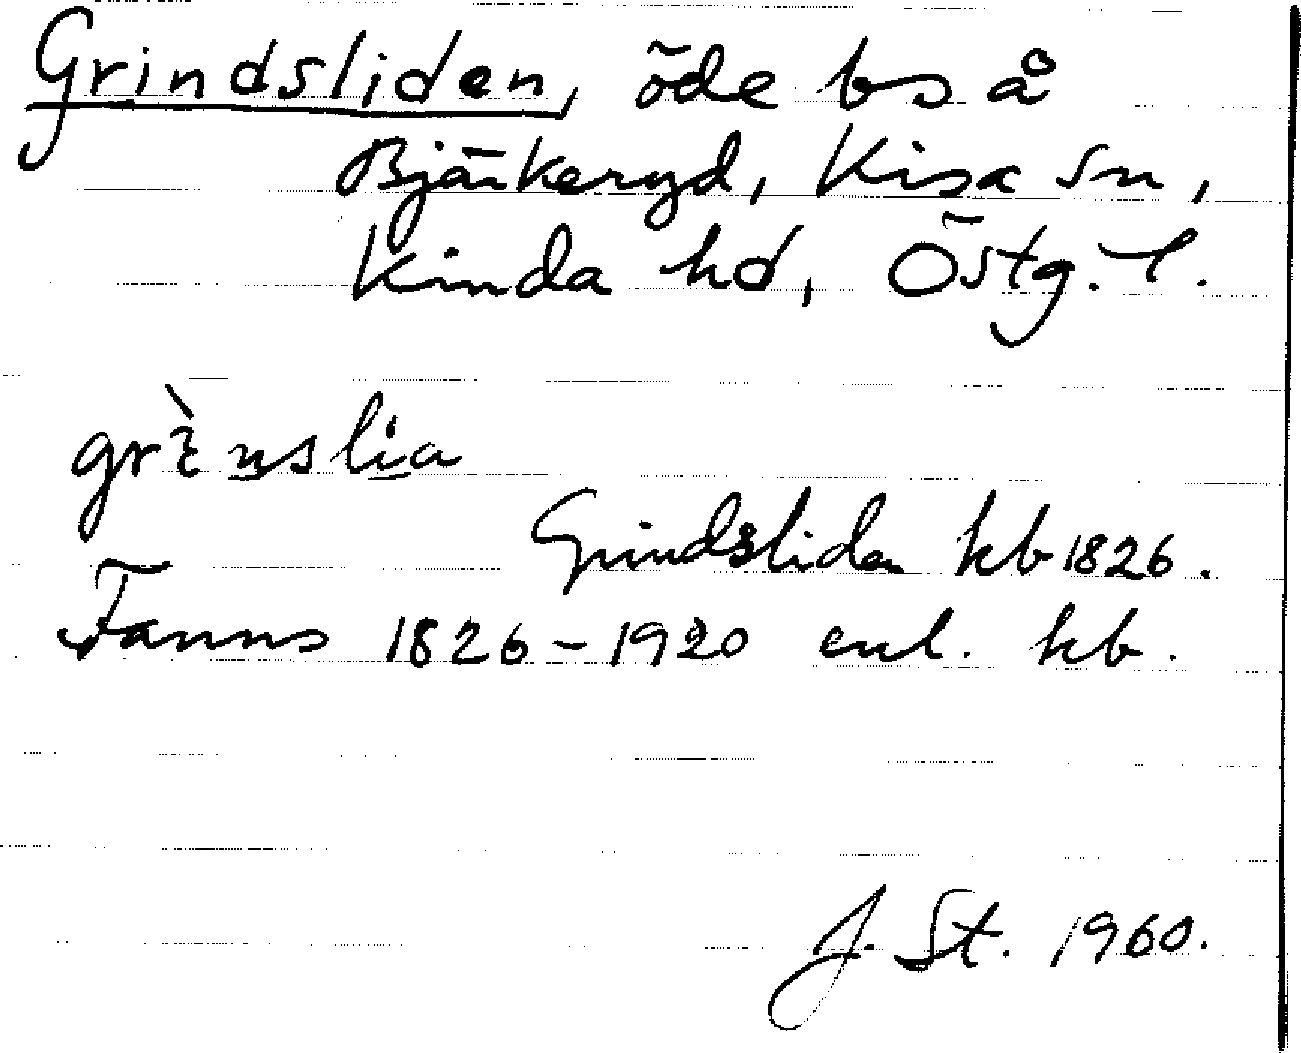 Grindsliden, öde bs å
Bjärkeryd, Kisa sn,
Kinda hd, Östg. l.
Grindsliden kb 1826.
Fanns 1826-1920 enl. kb.
J. St. 1960.